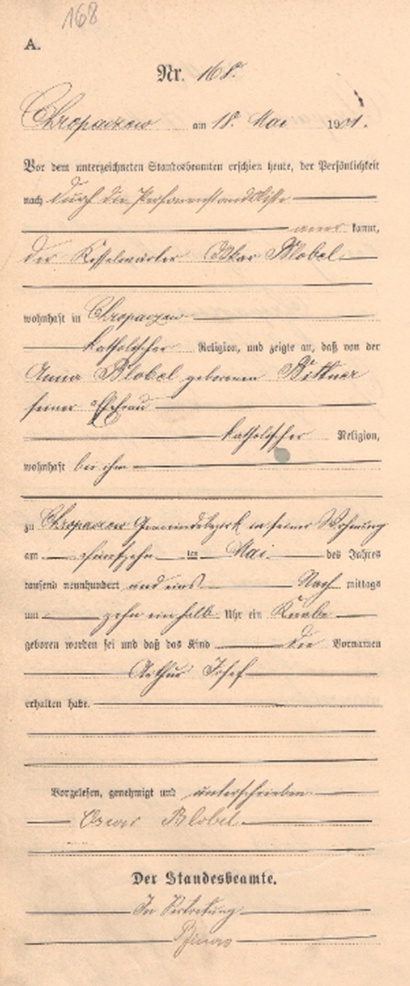 168
A.
Nr. 168.
Chropaczow am 18. Mai 1901.
Vor dem unterzeichneten Standesbeamten erschien heute, der Persönlichkeit
nach durch die Personenstandsliste
aner kannt,
der Kesselwärter Oskar Blobel
wohnhaft in Chropaczow
katholischer Religion, und zeigte an, daß von der
Anna Blobel geborenen Bittner
seiner Ehefrau
katholischer Religion,
wohnhaft bei ihm
zu Chropaczow Gemeindebezirk in seiner Wohnung
am fünfzehn ten Mai des Jahres
tausend neunhundert und eins Nach mittags
um zehn einhalb Uhr ein Knabe
geboren worden sei und daß das Kind die Vornamen
Arthur Josef
erhalten habe.
Vorgelesen, genehmigt und unterschrieben
Oscar Blobel
Der Standesbeamte.
In Vertretung